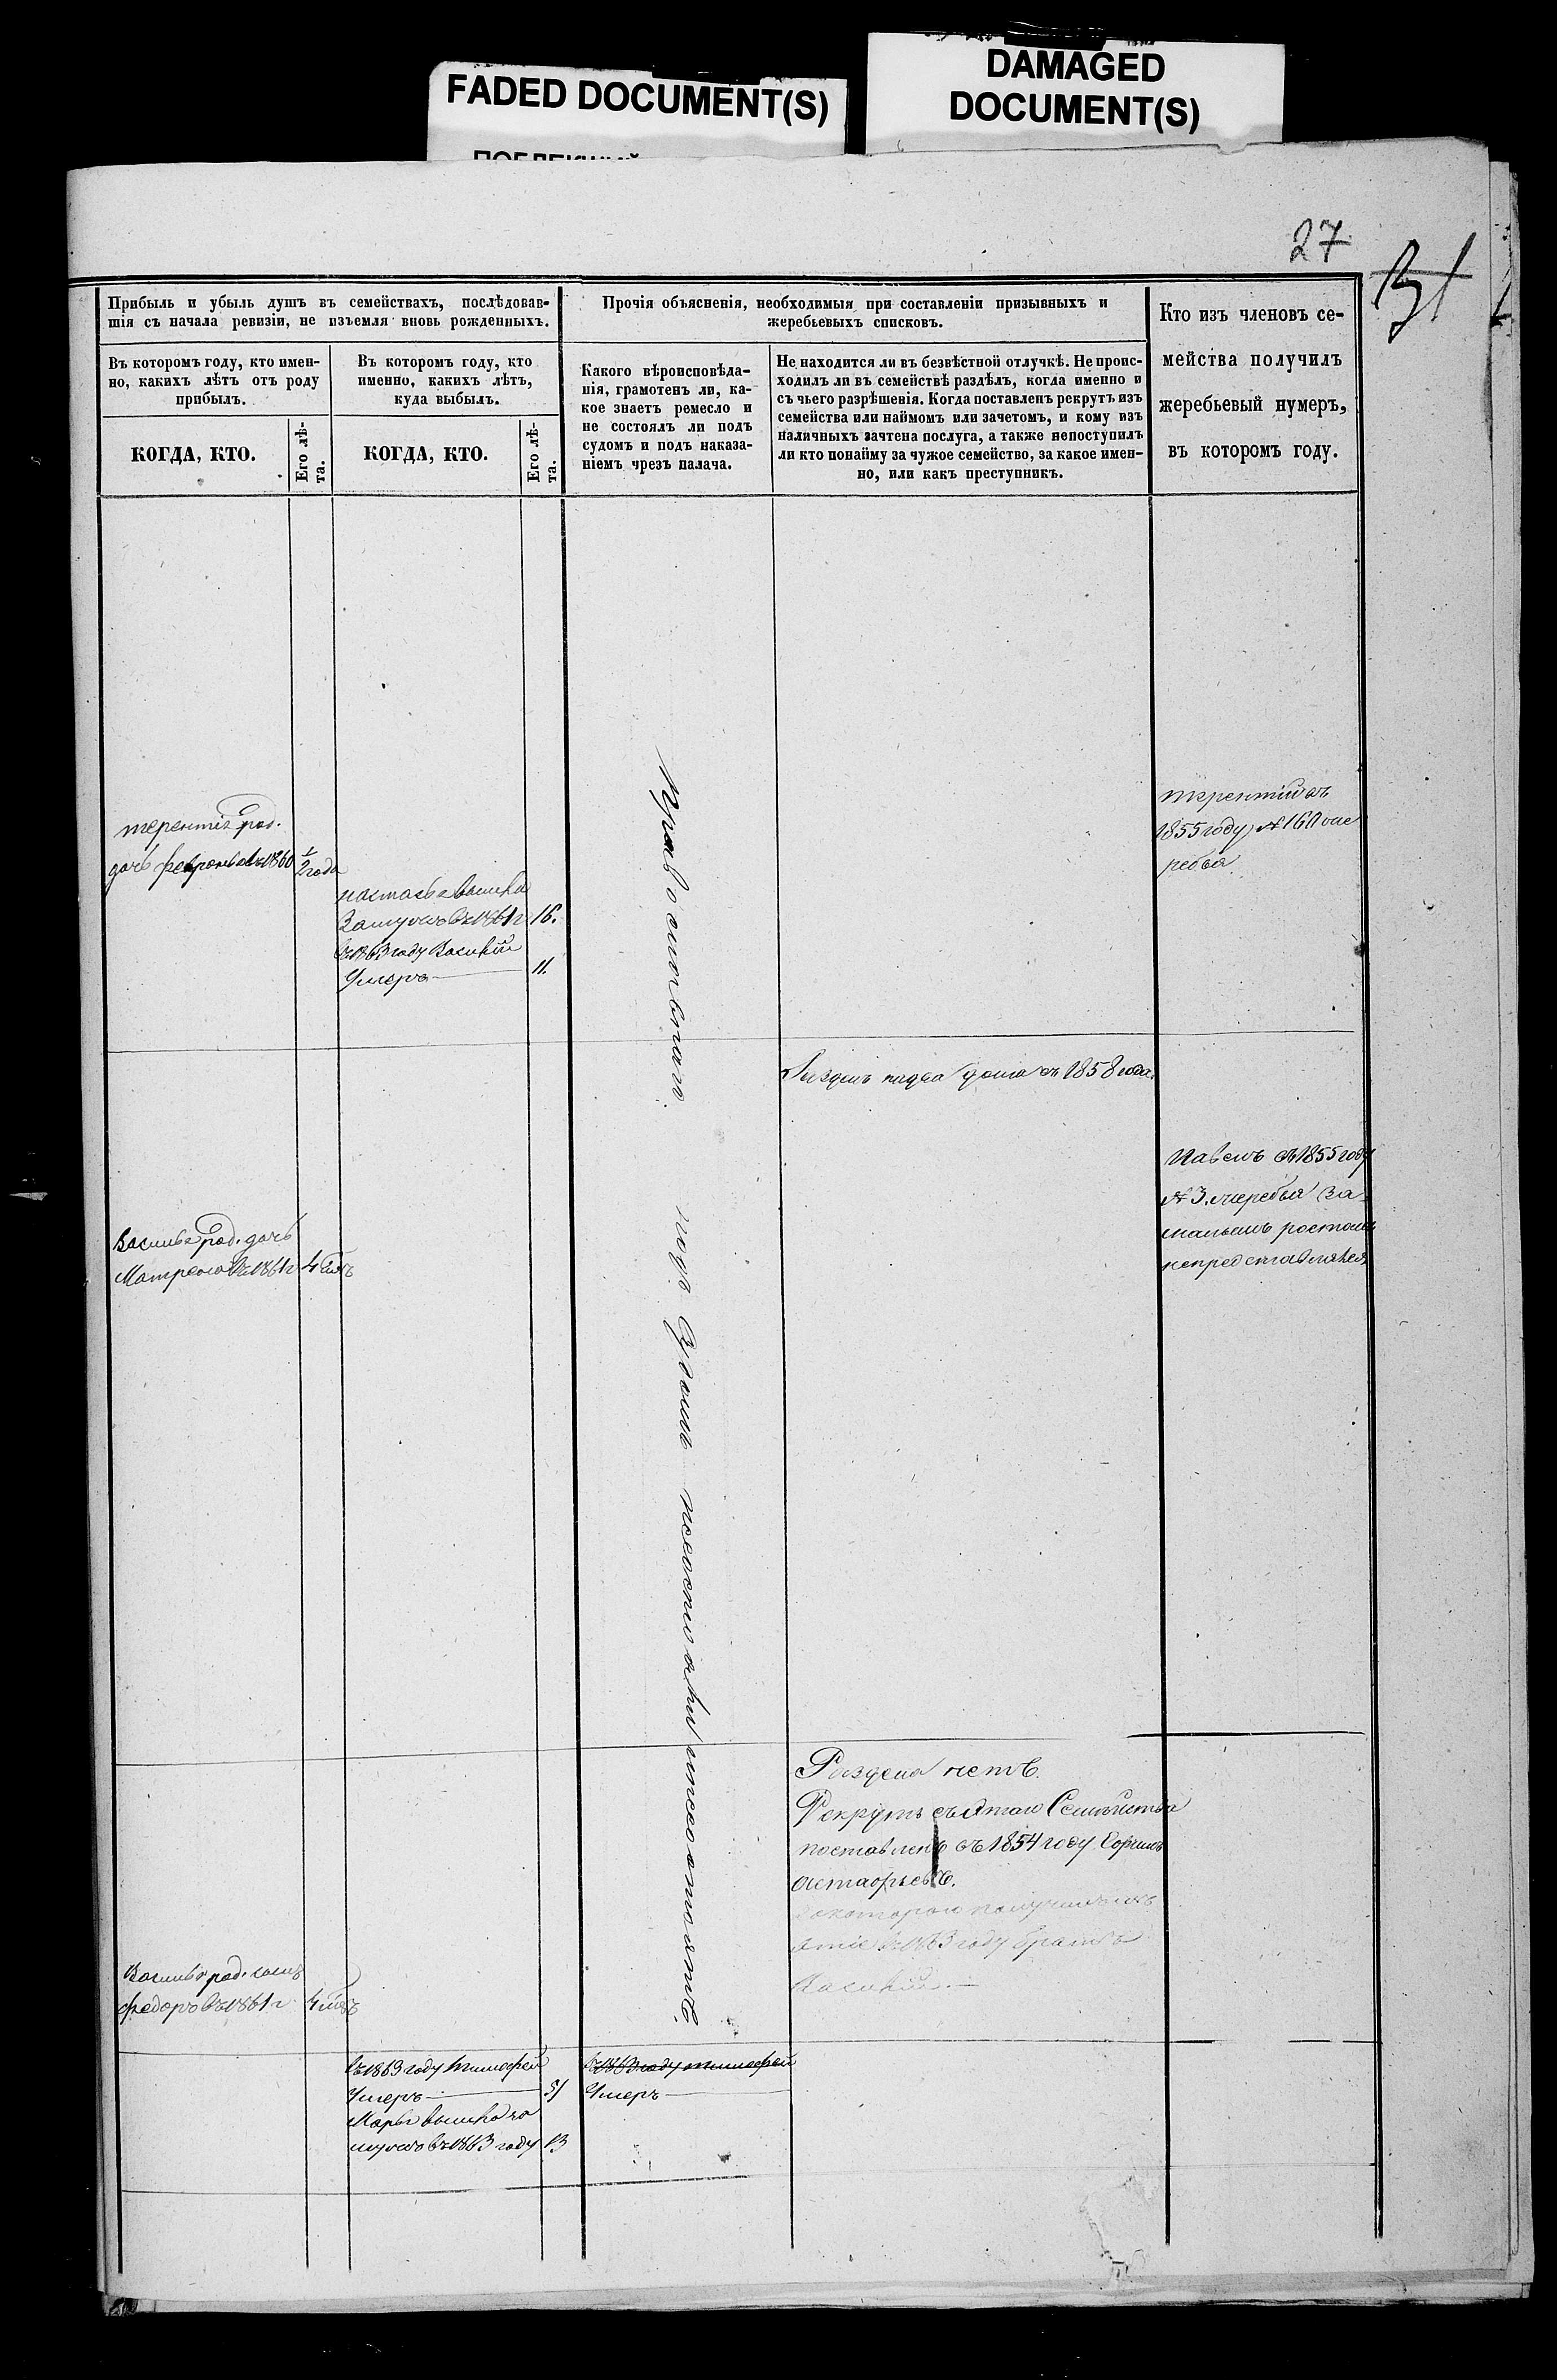 FADED DOCUMENT(S)
DAMAGED
DOCUMENT(S)
27
Прибыль и убыль душъ въ семействахъ, послѣдовав-
шія съ начала ревизіи, не изъемля вновь рожденныхъ.
Прочія объясненія, необходимыя при составленіи призывныхъ и
жеребьевыхъ списковъ.
Кто изъ членовъ се-
мейства получилъ
жеребьевый нумеръ,
въ которомъ году.
Въ которомъ году, кто имен-
но, какихъ лѣтъ отъ роду
прибылъ.
Въ которомъ году, кто
именно, какихъ лѣтъ,
куда выбылъ.
Какого вѣроисповѣда-
нія, грамотенъ ли, ка-
кое знаетъ ремесло и
не состоялъ ли подъ
судомъ и подъ наказа-
ніемъ чрезъ палача.
Не находится ли въ безвѣстной отлучкѣ. Не проис-
ходилъ ли въ семействѣ раздѣлъ, когда именно и
съ чьего разрѣшенія. Когда поставленъ рекрутъ изъ
семейства или наймомъ или зачетомъ, и кому изъ
наличныхъ зачтена послуга, а также непоступилъ
ли кто понайму за чужое семейство, за какое имен-
но, или какъ преступникъ.
КОГДА, КТО.
Его лѣ-
та.
КОГДА, КТО.
Его лѣ-
та.
терентія род.
дочь февронья въ 1860 ½ года
настасья вышла
Замужъ въ 1861 г 16.
въ 1863 году Василий
Умеръ 11.
Православнаго.
терентий въ
1855 году № 160 же
ребья
Раздѣлъ на два дома въ 1858 года.
Павелъ въ 1855 году
№ 3. жеребья За
малымъ ростомъ
непредставлялся
Василья род. дочь
Матрена въ 1861 г 4 лѣтъ
подъ Судомъ несостояли и несостоятъ.
Раздѣла нетъ.
Рекрутъ съ Этаго Семѣйства
поставленъ въ 1854 году
въ 1863 году братъ
Василья род. сынъ
федоръ въ 1861 г 4 лѣтъ
въ 1863 году тимофей
Умеръ 51
Марья вышла за
мужъ въ 1863 году 13
въ 1863 году тимофей
Умеръ